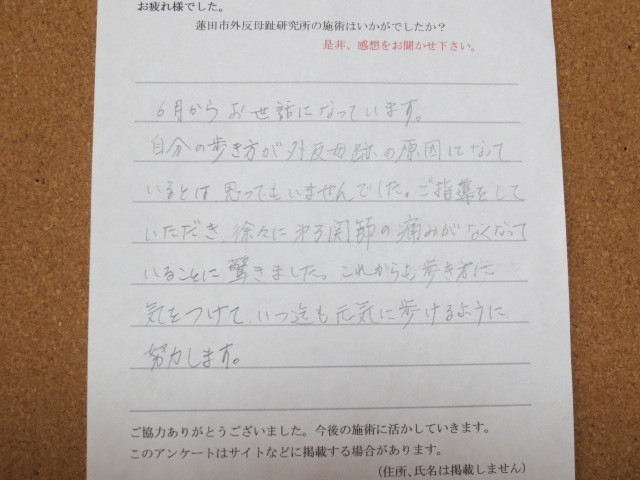 お疲れ様でした。
蓮田市外反母趾研究所の施術はいかがでしたか?
是非、感想をお聞かせ下さい。
6月からお世話になっています。
自分の歩き方が外反母趾の原因になって
いるとは、思ってもいませんでした。ご指導をして
いただき、徐々に 関節の痛みがなくなって
いることに驚きました。これからも歩き方に
気をつけて、いつ迄も元気に歩けるように
努力します。
ご協力ありがとうございました。今後の施術に活かしていきます。
このアンケートはサイトなどに掲載する場合があります。
(住所、氏名は掲載しません)